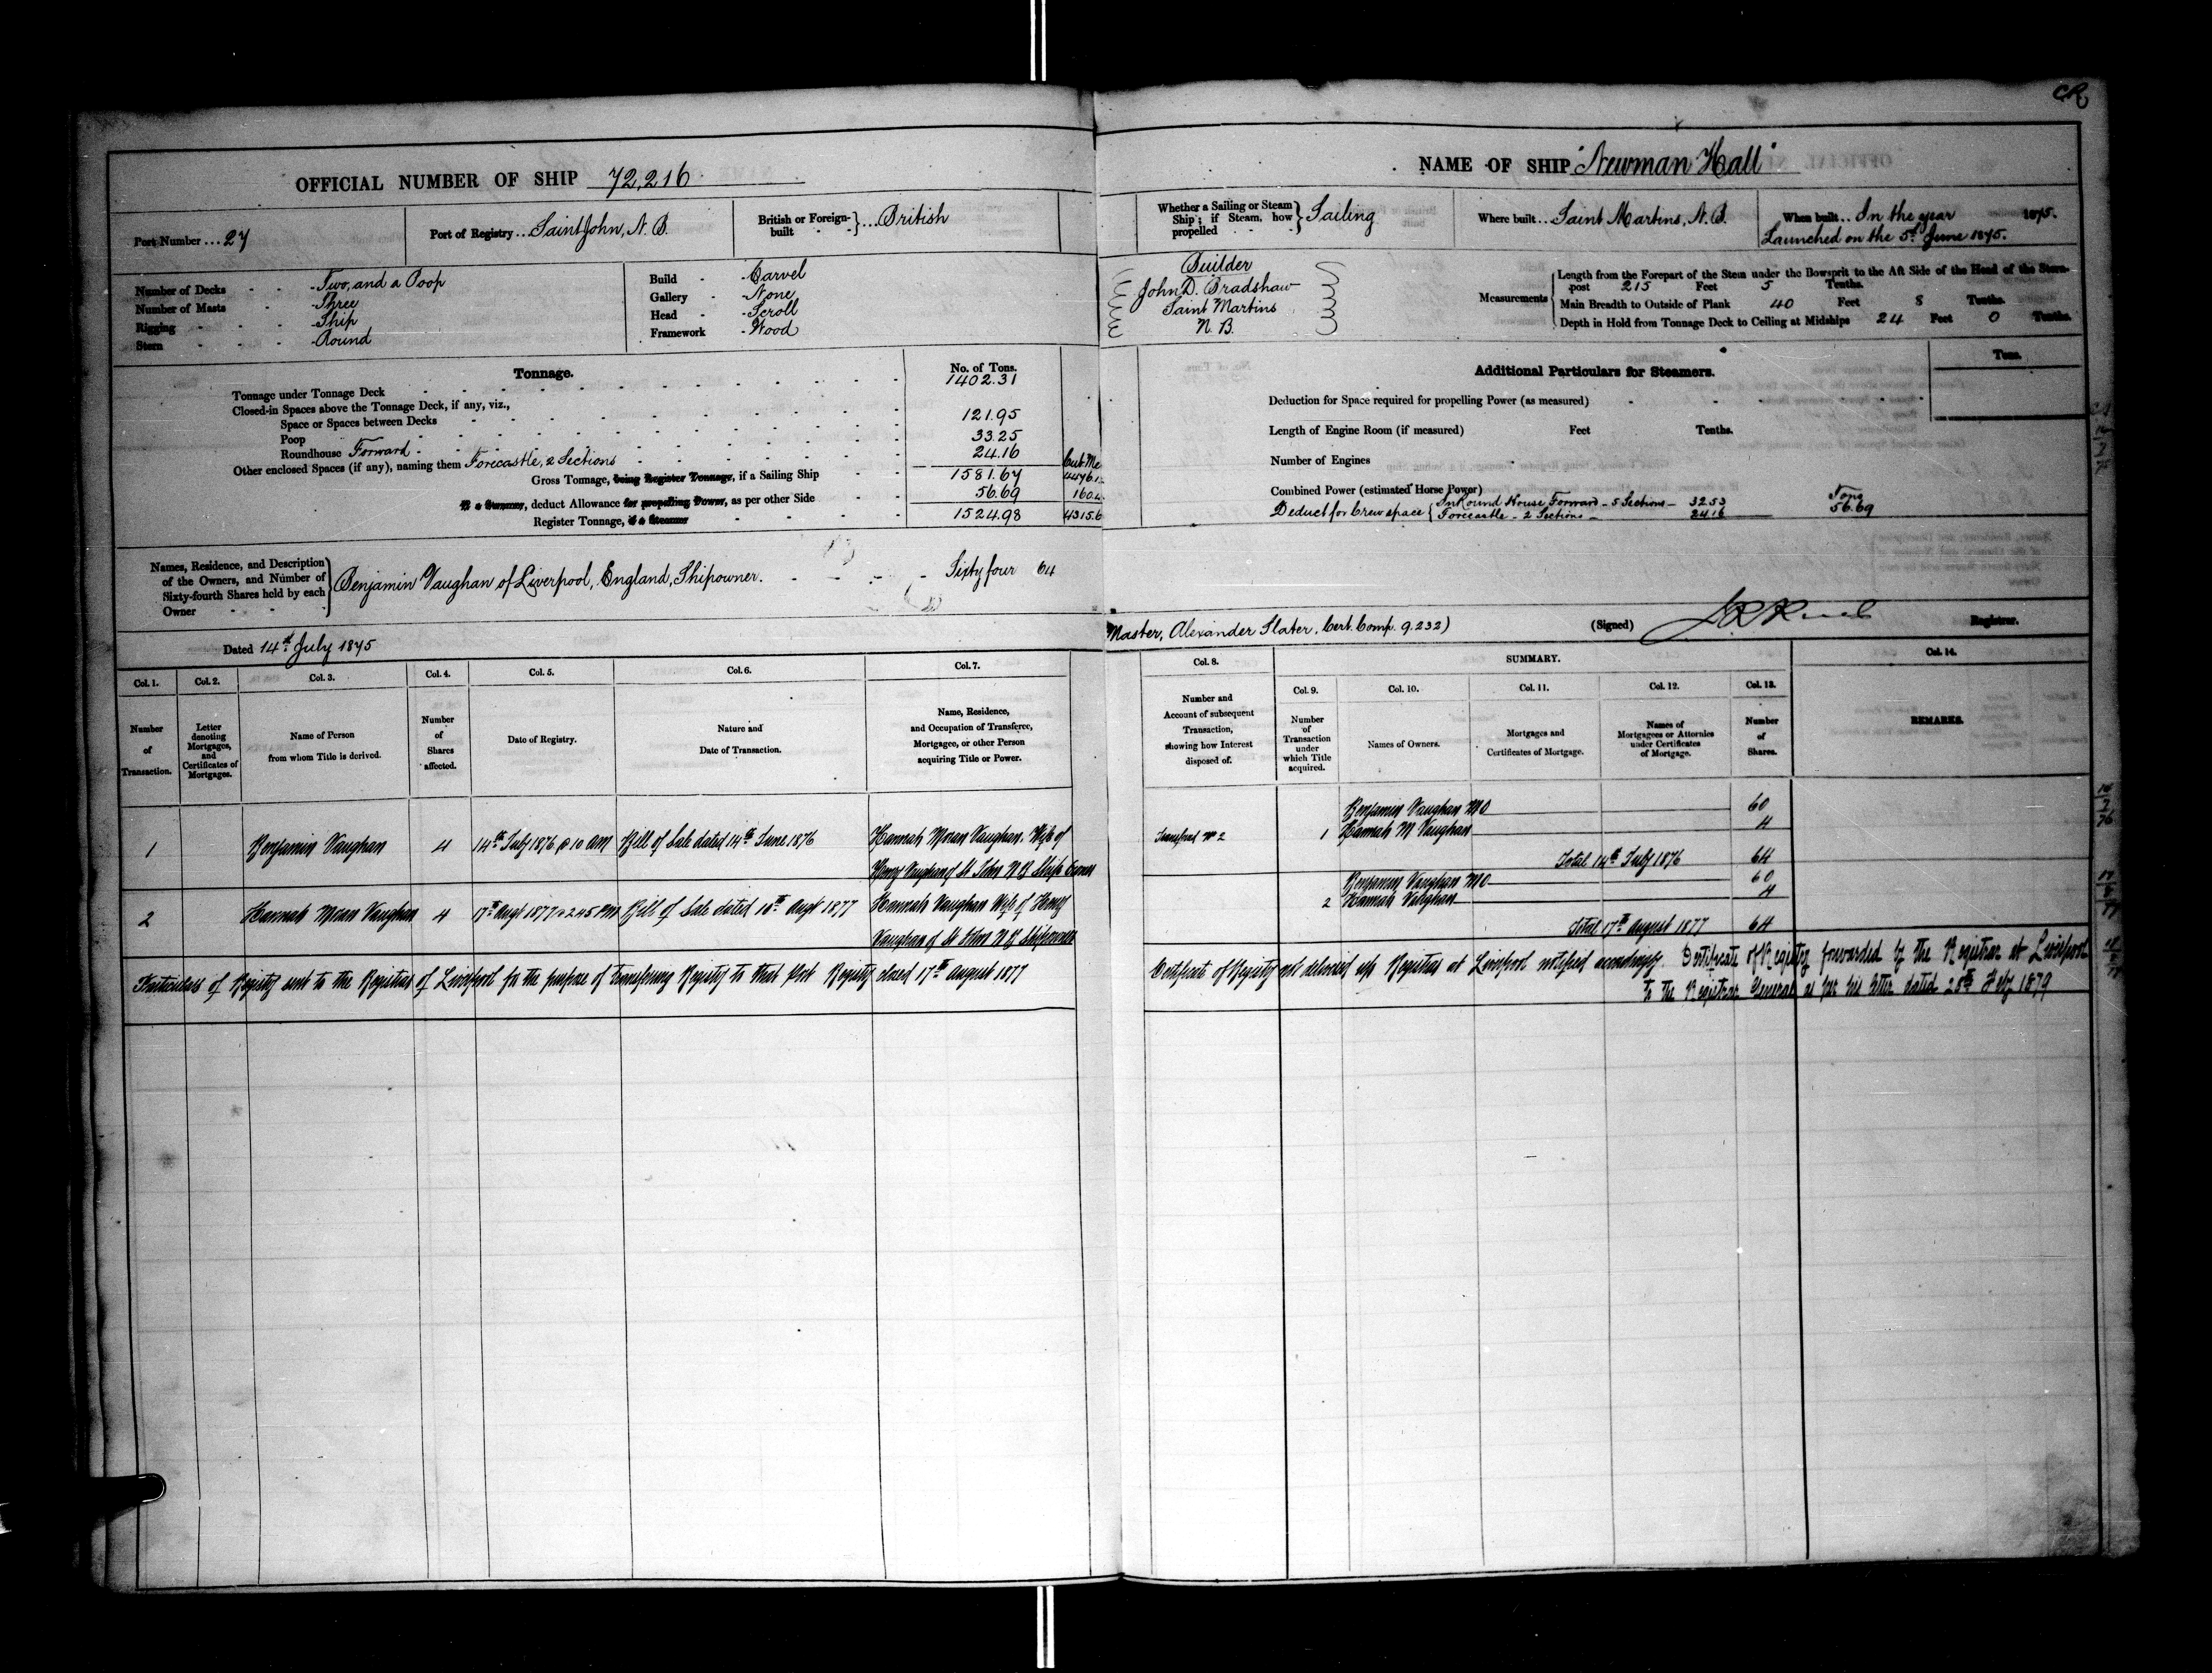 CR
OFFICIAL NUMBER OF SHIP 72,216
Port Number ... 27
Port of Registry ... Saint John, N. B.
British or Foreign-built } ... British
Number of Decks - - Two, and a Poop
Number of Masts - - Three
Rigging - - - Ship
Stern - - - Round
Build - Carvel
Gallery - None
Head - Scroll
Framework - Wood
Tonnage.
No. of Tons.
Tonnage under Tonnage Deck 1402.31
Closed-in Spaces above the Tonnage Deck, if any, viz.,
Space or Spaces between Decks 121.95
Poop
Roundhouse Forward 33.25
Other enclosed Spaces (if any), naming them Forecastle, 2 Sections 24.16
Gross Tonnage, being Register Tonnage, if a Sailing Ship 1581.67
If a Steamer, deduct Allowance for propelling Power, as per other Side 56.69
Register Tonnage, if a Steamer 1524.98 4315.6
Names, Residence, and Description
of the Owners, and Number of
Sixty-fourth Shares held by each
Owner
Benjamin Vaughan of Liverpool, England, Shipowner. - - - - Sixty four 64
Dated 14th July 1875
Col. 1. Col. 2. Col. 3. Col. 4. Col. 5. Col. 6. Col. 7.
Number of Transaction.
Letter denoting Mortgages, and Certificates of Mortgages.
Name of Person from whom Title is derived.
Number of Shares affected.
Date of Registry.
Nature and Date of Transaction.
Name, Residence, and Occupation of Transferee, Mortgagee, or other Person acquiring Title or Power.
1 Benjamin Vaughan 4 14th July 1876 @ 10 AM Bill of Sale dated 14th June 1876 Hannah Moran Vaughan. Wife of
Henry Vaughan of St John N B Ship Owner
2 Hannah Moran Vaughan 4 17th Augt 1877 @ 2.45 PM Bill of Sale dated 16th Augt 1877 Hannah Vaughan Wife of Henry
Vaughan of St John N B Shipowner
Particulars of Registry sent to the Registrar of Liverpool for the purpose of transferring Registry to that Port Registry closed 17th August 1877
NAME OF SHIP "Newman Hall"
Whether a Sailing or Steam Ship; if Steam, how propelled } Sailing
Where built ... Saint Martins, N. B.
When built ... In the year 1875.
Launched on the 5th June 1875.
Builder
John D. Bradshaw
Saint Martins
N. B.
Measurements
Length from the Forepart of the Stem under the Bowsprit to the Aft Side of the Head of the Stern-
post 215 Feet 5 Tenths.
Main Breadth to Outside of Plank 40 Feet 8 Tenths.
Depth in Hold from Tonnage Deck to Ceiling at Midships 24 Feet 0 Tenths.
Additional Particulars for Steamers.
Tons.
Deduction for Space required for propelling Power (as measured)
Length of Engine Room (if measured) Feet Tenths.
Number of Engines
Combined Power (estimated Horse Power)
Deduct for Crew space { In Round House Forward - 5 Sections - 32.53 Tons
Forecastle - 2 Sections - 24.16 56.69
Master, Alexander Slater, Cert. Comp. 9.232)
(Signed) Registrar.
Col. 8. SUMMARY. Col. 14.
Col. 9. Col. 10. Col. 11. Col. 12. Col. 13.
Number and Account of subsequent Transaction, showing how Interest disposed of.
Number of Transaction under which Title acquired.
Names of Owners.
Mortgages and Certificates of Mortgage.
Names of Mortgagees or Attornies under Certificates of Mortgage.
Number of Shares.
REMARKS.
Benjamin Vaughan M O 60
Transfered No 2 1 Hannah M Vaughan 4
Total 14th July 1876 64
Benjamin Vaughan M O 60
2 Hannah Vaughan 4
Total 17th August 1877 64
Certificate of Registry not delivered up Registrar at Liverpool notified accordingly. Certificate of Registry forwarded by the Registrar at Liverpool
to the Registrar General as per his letter dated 25th Feby 1879